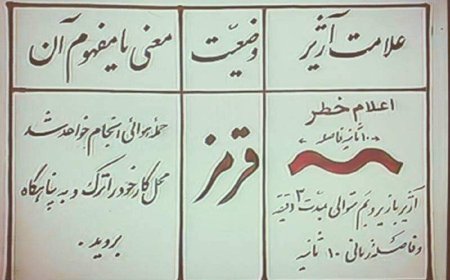 علامت آژیر
وضعیت
معنی یا مفهوم آن
اعلام خطر
۱۰ ثانیه فاصله
آژیر با زیر و بم متوالی بمدت ۳ دقیقه
و فاصله زمانی ۱۰ ثانیه
قرمز
حمله هوائی انجام خواهد شد
محل کار خود را ترک و به پناهگاه
بروید .